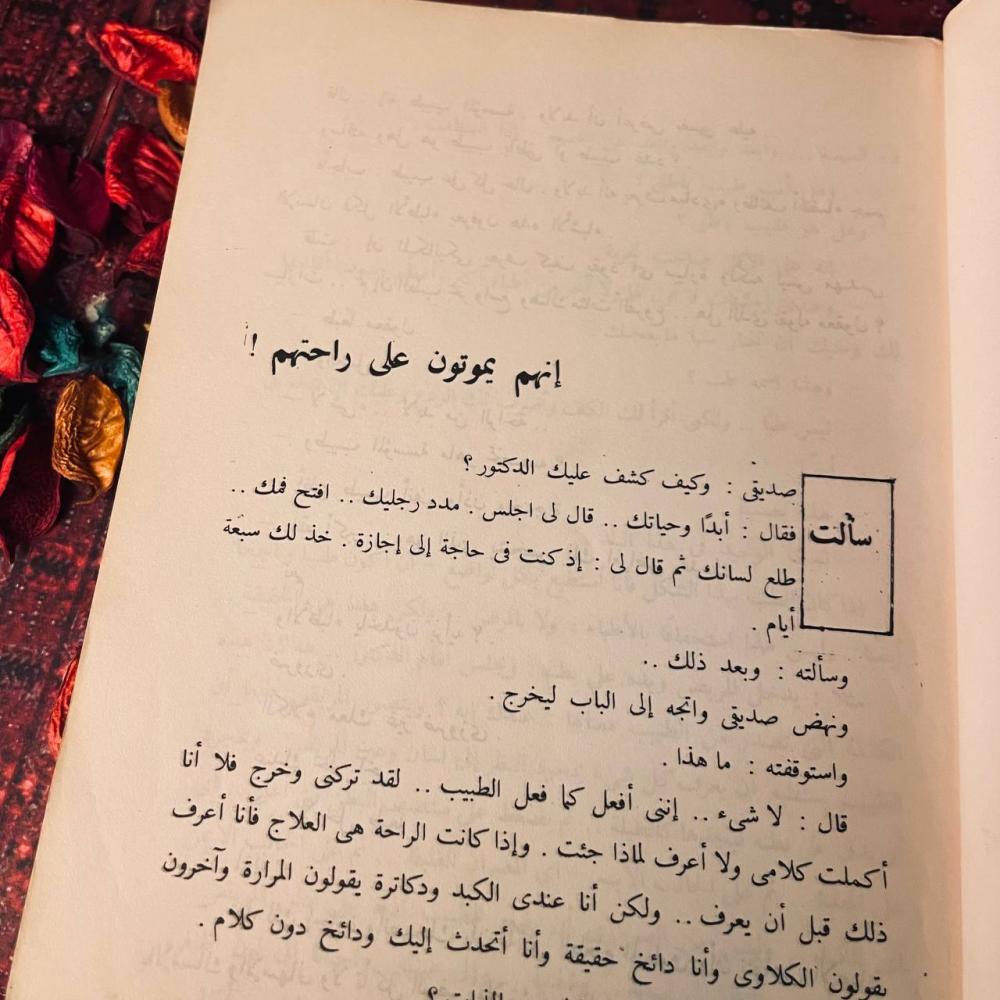 إنهم يموتون على راحتهم !
سألت
صديقى : وكيف كشف عليك الدكتور ؟
فقال : أبدًا وحياتك .. قال لى اجلس . مدد رجليك .. افتح فمك ..
طلع لسانك ثم قال لى : إذ كنت فى حاجة إلى إجازة . خذ لك سبعة
أيام .
وسألته : وبعد ذلك ..
ونهض صديقى واتجه إلى الباب ليخرج .
واستوقفته : ما هذا .
قال : لا شىء .. إننى أفعل كما فعل الطبيب .. لقد تركنى وخرج فلا أنا
أكملت كلامى ولا أعرف لماذا جئت . وإذا كانت الراحة هى العلاج فأنا أعرف
ذلك قبل أن يعرف .. ولكن أنا عندى الكبد ودكاترة يقولون المرارة وآخرون
يقولون الكلاوى وأنا دائخ حقيقة وأنا أتحدث إليك ودائخ دون كلام .